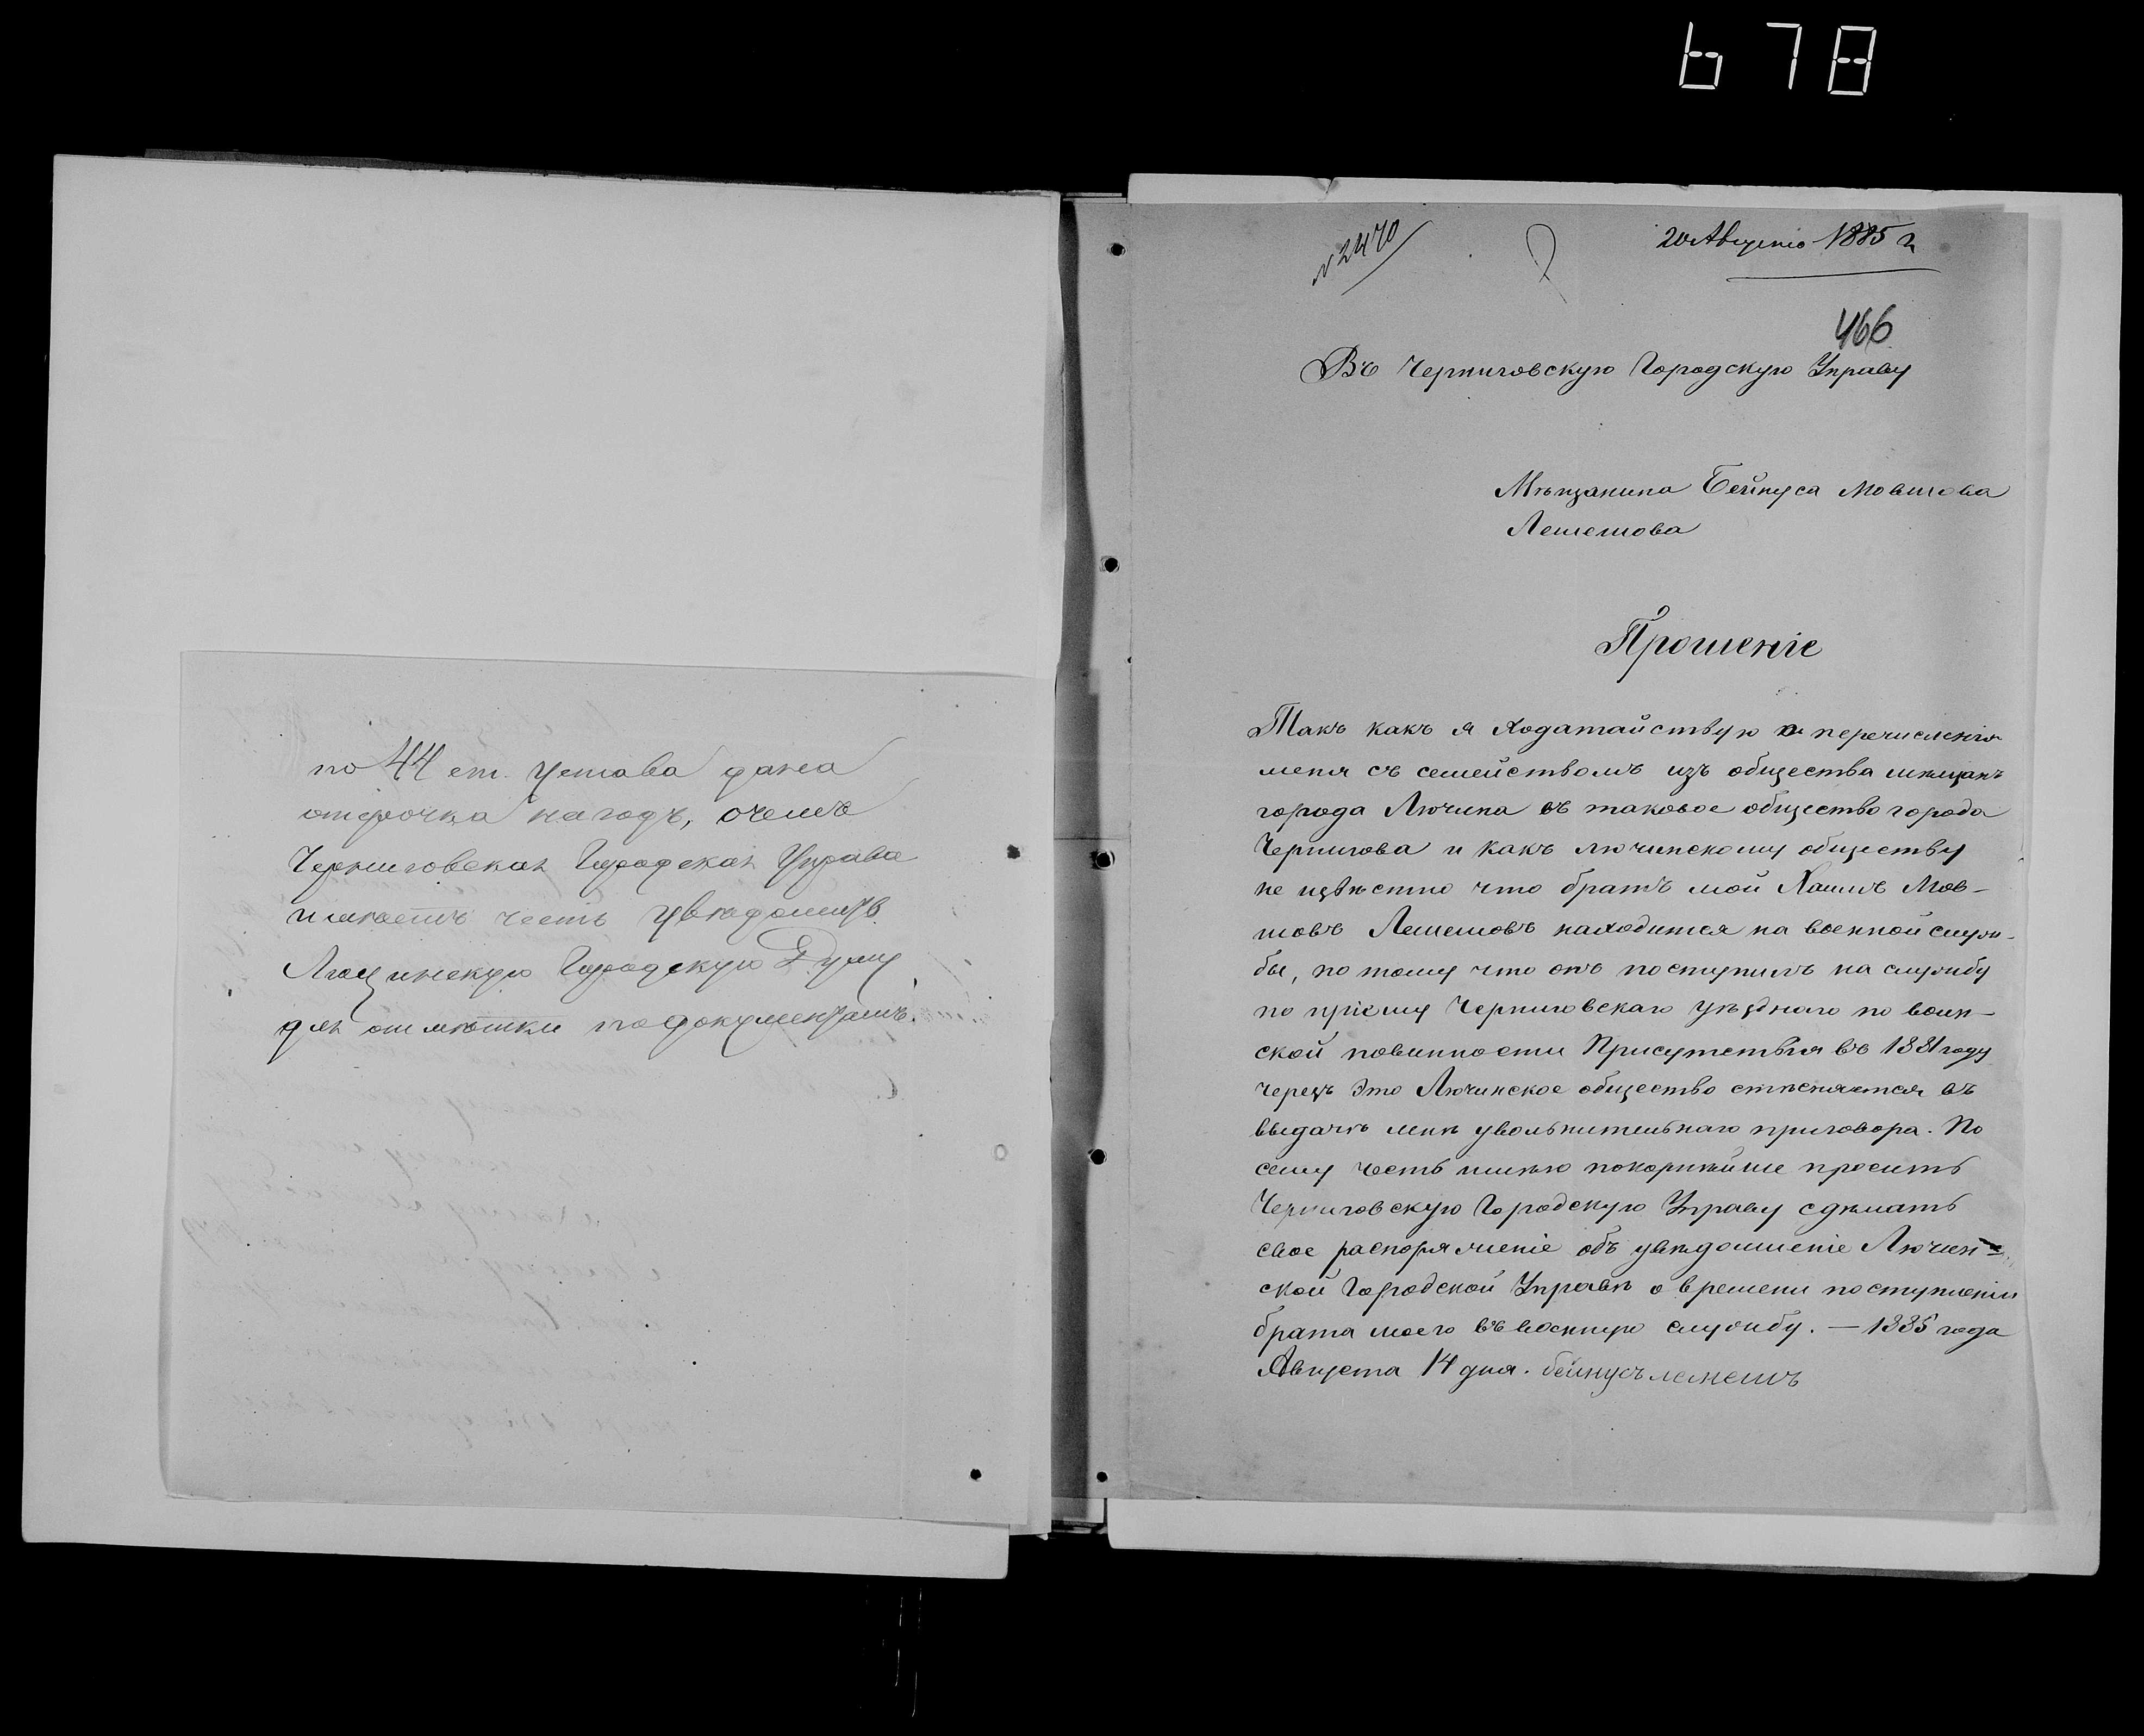 678
по 44 ст. устава дана
отсрочка на годъ, о чемъ
Черниговская Городская Управа
имѣетъ честь увѣдомить
Люцинскую Городскую Думу
для отмѣтки по документамъ.
№ 2470
20 Августа 1885 г.
466
Въ Черниговскую Городскую Управу
Мѣщанина Бейнуса Мовшова
Лемешова
Прошеніе
Такъ какъ я ходатайствую о перечисленія
меня съ семействомъ изъ общества мѣщанъ
города Лючина въ таковое общество города
Чернигова и какъ лючинскому обществу
не извѣстно что братъ мой Хаимъ Мов-
шовъ Лемешовъ находится на военной служ-
бы, по тому что онъ поступилъ на службу
по пріему Черниговскаго уѣзднаго по воин-
ской повинности Присутствія въ 1881 году
черезъ Это Лючинское общество стѣсняется въ
выдачѣ мнѣ увольнительнаго приговора. По
сему честь имѣю покорнѣйше просить
Черниговскую Городскую Управу сдѣлать
свое распоряженіе объ увѣдомленіе Лючин-
ской Городской Управѣ о времени поступленіи
брата моего въ военную службу. — 1885 года
Августа 14 дня. бейнусъ лемешъ